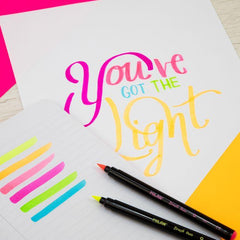 You've
GOT THE
Light
MILAN
MILAN